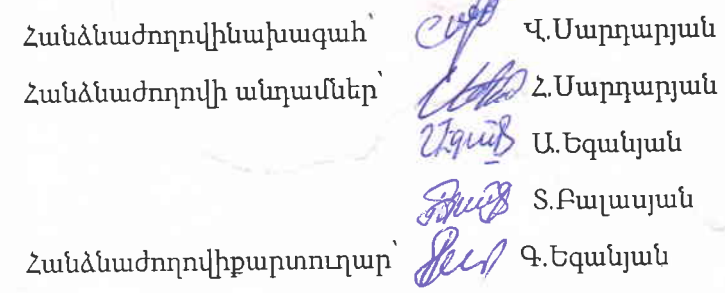 Հանձնաժողովինախագահ՝ Վ.Սարդարյան
Հանձնաժողովի անդամներ՝ Հ.Սարդարյան
Ա.Եգանյան
Տ.Բալասյան
Հանձնաժողովիքարտուղար՝ Գ.Եգանյան